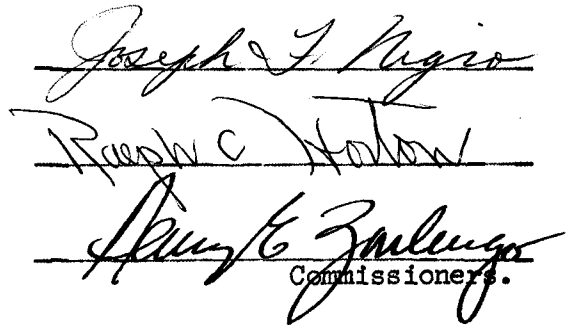 Joseph F Nigro
Ralph C Horton
Henry E Zarlengo
Commissioners.